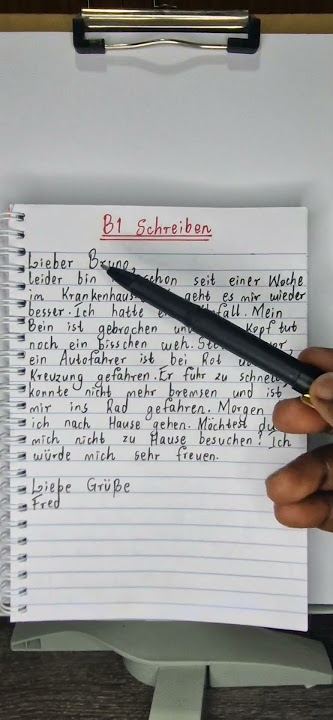 B1 Schreiben
Lieber Bruno,
leider bin schon seit einer Woche
im Krankenhaus geht es mir wieder
besser. Ich hatte Unfall. Mein
Bein ist gebrochen und Kopf tut
noch ein bisschen weh.
ein Autofahrer ist bei Rot
Kreuzung gefahren. Er fuhr zu schnell
konnte nicht mehr bremsen und ist
mir ins Rad gefahren. Morgen
ich nach Hause gehen. Möchtest du
mich nicht zu Hause besuchen? Ich
würde mich sehr freuen.
Liebe Grüße
Fred